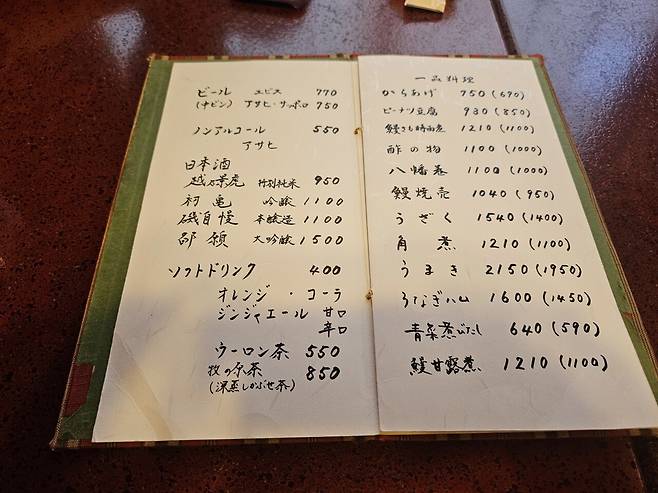 ビール エビス 770
(中ビン) アサヒ・サッポロ 750
ノンアルコール 550
アサヒ
日本酒
越乃景虎 特別純米 950
初亀 吟醸 1100
磯自慢 本醸造 1100
大吟醸 1500
ソフトドリンク 400
オレンジ・コーラ
ジンジャエール 甘口
辛口
ウーロン茶 550
牧の原茶 850
(深蒸しかぶせ茶)
一品料理
からあげ 750 (690)
ピーナツ豆腐 930 (850)
鰻きも時雨煮 1210 (1100)
酢の物 1100 (1000)
八幡巻 1100 (1000)
鰻焼売 1040 (950)
うざく 1540 (1400)
角煮 1210 (1100)
うまき 2150 (1950)
うなぎハム 1600 (1450)
青菜煮びたし 640 (590)
鰻甘露煮 1210 (1100)